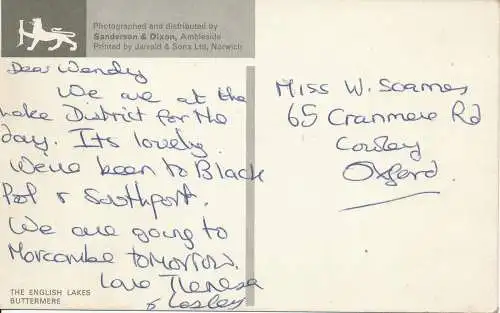 Photographed and distributed by
Sanderson & Dixon, Ambleside
Printed by Jarrold & Sons Ltd, Norwich
Dear Wendy
We are at the
Lake District for the
day. Its lovely.
We've been to Black
Pool & Southport.
We are going to
Morcombe tomorrow.
Love Theresa
& Lesley
THE ENGLISH LAKES
BUTTERMERE
Miss W. Soames
65 Cranmere Rd
Cowley
Oxford.